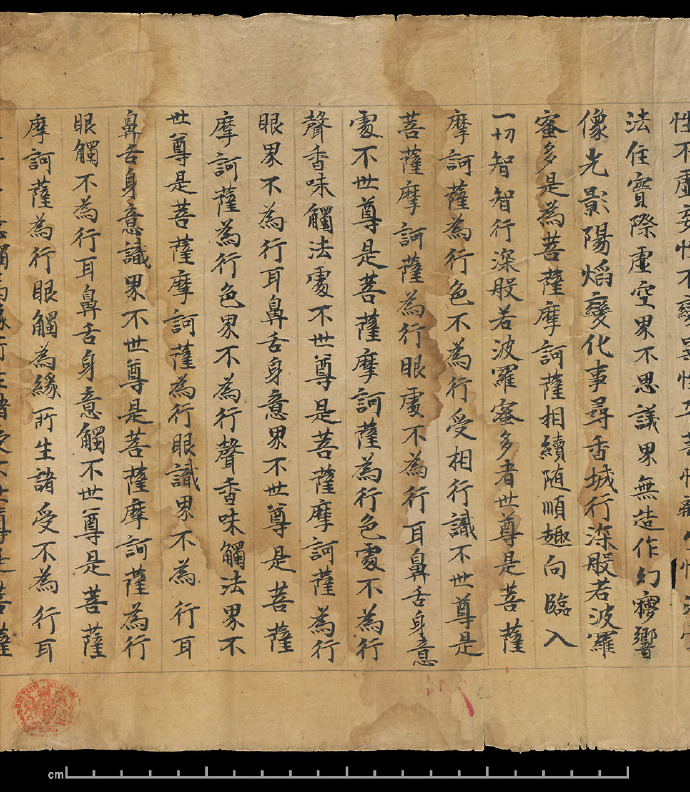 性不虛妄性不變異性平等性離生性
法住實際虛空界不思議界無造作幻夢響
像光影陽焰變化事尋香城行深般若波羅
蜜多是為菩薩摩訶薩相續随順趣向臨入
一切智智行深般若波羅蜜多者世尊是菩薩
摩訶薩為行色不為行受相行識不世尊是
菩薩摩訶薩為行眼處不為行耳鼻舌身意
處不世尊是菩薩摩訶薩為行色處不為行
聲香味觸法處不世尊是菩薩摩訶薩為行
眼界不為行耳鼻舌身意界不世尊是菩薩
摩訶薩為行色界不為行聲香味觸法界不
世尊是菩薩摩訶薩為行眼識界不為行耳
鼻舌身意識界不世尊是菩薩摩訶薩為行
眼觸不為行耳鼻舌身意觸不世尊是菩薩
摩訶薩為行眼觸為緣所生諸受不為行耳
意觸為緣所生諸受不世尊是菩薩
cm